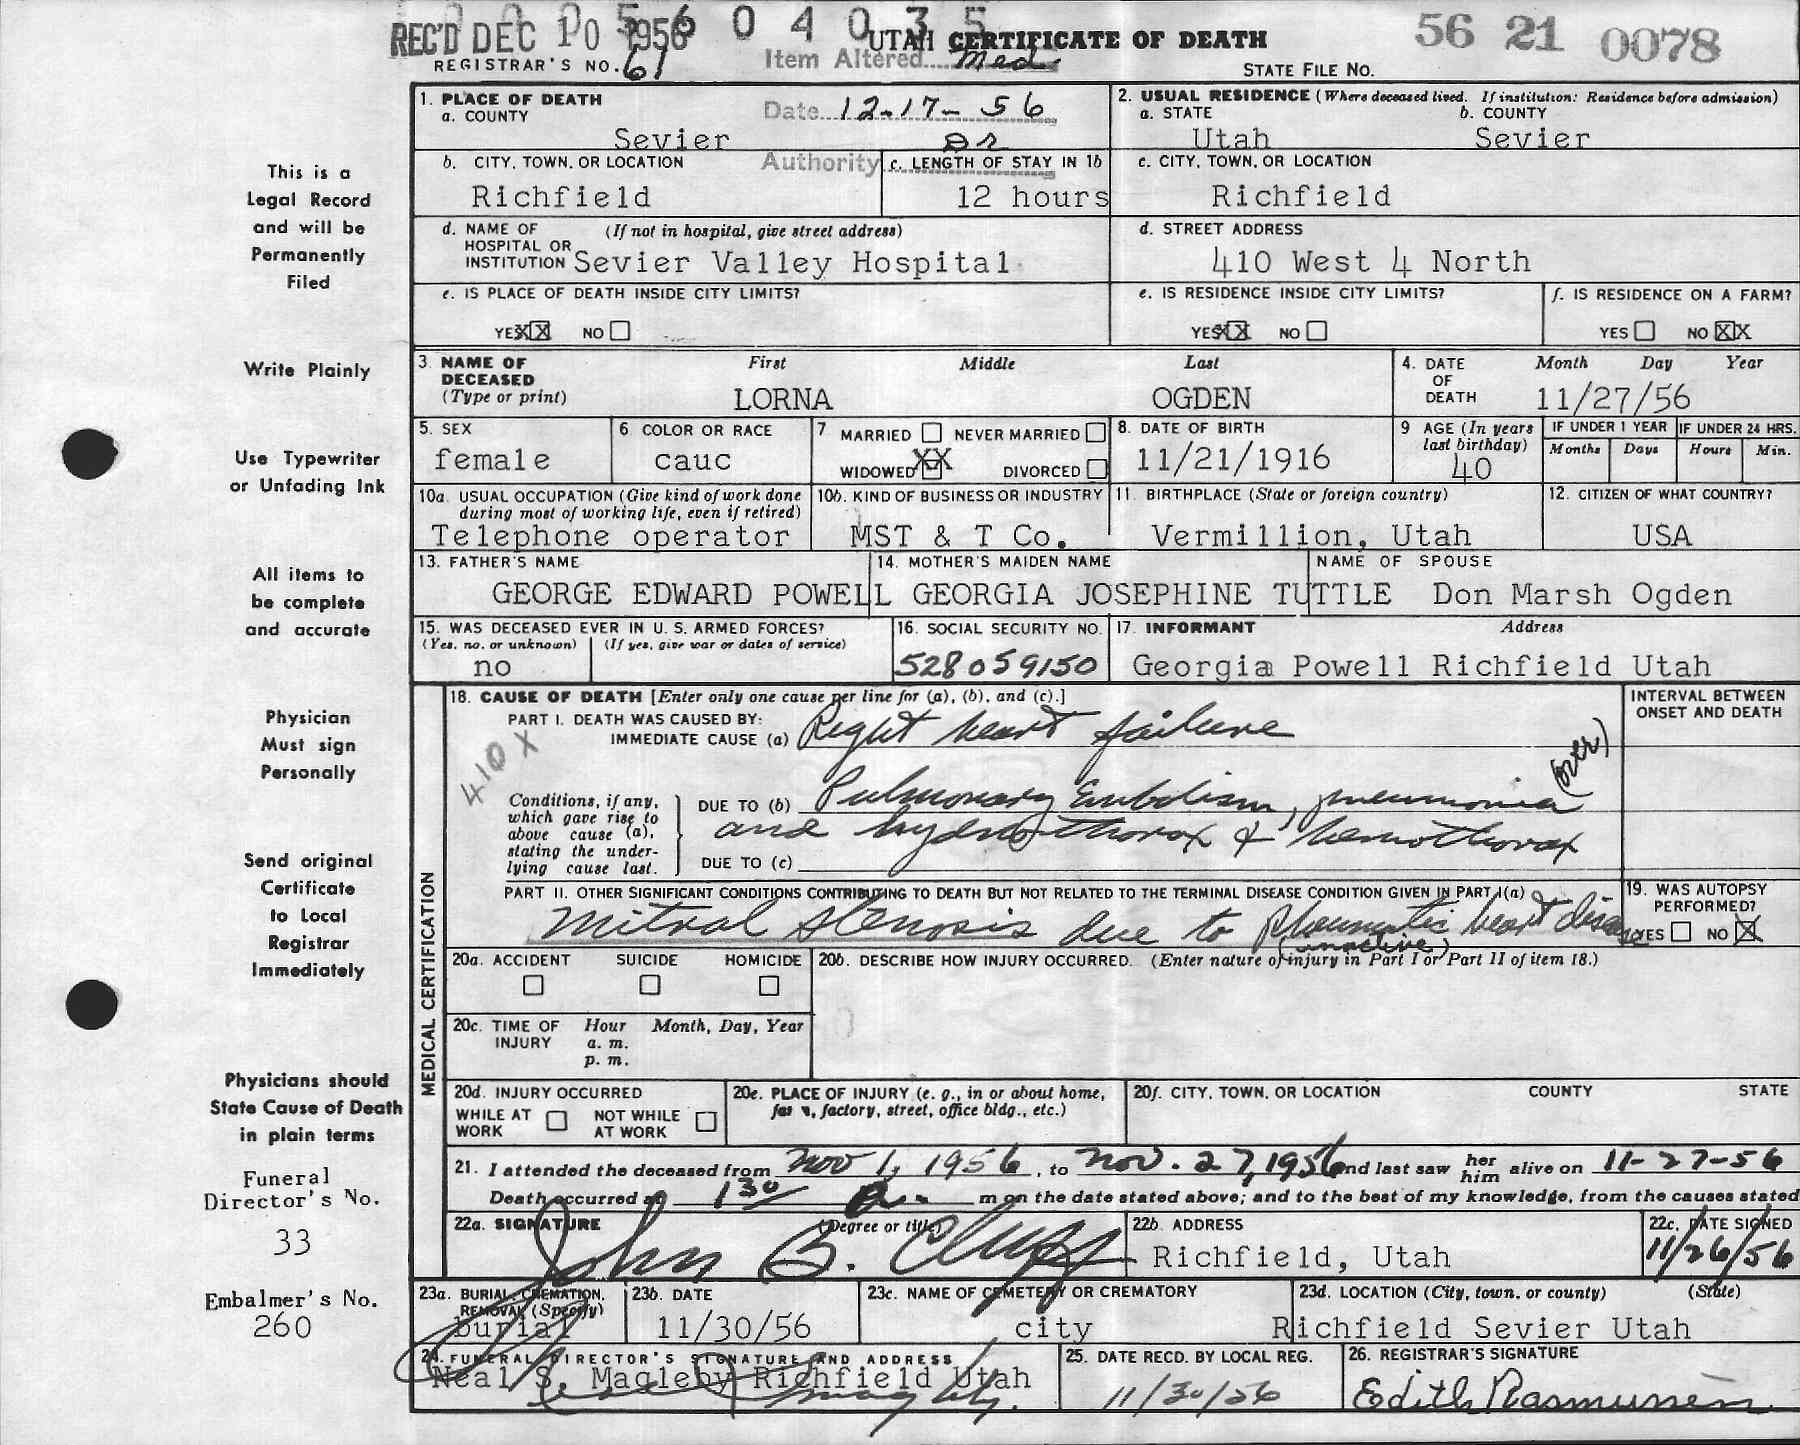 0 0 0 5 6 0 4 0 3 5
REC'D DEC 10 1956
UTAH CERTIFICATE OF DEATH
56 21 0078
REGISTRAR'S NO. 61
Item Altered Med
STATE FILE No.
1. PLACE OF DEATH
a. COUNTY
Sevier
Date 12-17-56
Authority
2. USUAL RESIDENCE (Where deceased lived. If institution: Residence before admission)
a. STATE
Utah
b. COUNTY
Sevier
b. CITY, TOWN, OR LOCATION
Richfield
c. LENGTH OF STAY IN 1b
12 hours
c. CITY, TOWN, OR LOCATION
Richfield
d. NAME OF HOSPITAL OR INSTITUTION (If not in hospital, give street address)
Sevier Valley Hospital
d. STREET ADDRESS
410 West 4 North
e. IS PLACE OF DEATH INSIDE CITY LIMITS?
YES XX NO
e. IS RESIDENCE INSIDE CITY LIMITS?
YES XX NO
f. IS RESIDENCE ON A FARM?
YES NO XX
3. NAME OF DECEASED (Type or print)
First Middle Last
LORNA OGDEN
4. DATE OF DEATH
Month Day Year
11/27/56
5. SEX
female
6. COLOR OR RACE
cauc
7 MARRIED NEVER MARRIED
WIDOWED XX DIVORCED
8. DATE OF BIRTH
11/21/1916
9 AGE (In years last birthday)
40
IF UNDER 1 YEAR
Months Days
IF UNDER 24 HRS.
Hours Min.
10a. USUAL OCCUPATION (Give kind of work done during most of working life, even if retired)
Telephone operator
10b. KIND OF BUSINESS OR INDUSTRY
MST & T Co.
11. BIRTHPLACE (State or foreign country)
Vermillion, Utah
12. CITIZEN OF WHAT COUNTRY?
USA
13. FATHER'S NAME
GEORGE EDWARD POWELL
14. MOTHER'S MAIDEN NAME
GEORGIA JOSEPHINE TUTTLE
NAME OF SPOUSE
Don Marsh Ogden
15. WAS DECEASED EVER IN U. S. ARMED FORCES?
(Yes, no, or unknown) (If yes, give war or dates of service)
no
16. SOCIAL SECURITY NO.
528059150
17. INFORMANT Address
Georgia Powell Richfield Utah
MEDICAL CERTIFICATION
18. CAUSE OF DEATH [Enter only one cause per line for (a), (b), and (c).]
PART I. DEATH WAS CAUSED BY:
IMMEDIATE CAUSE (a) Right heart failure
410 X
(over)
INTERVAL BETWEEN ONSET AND DEATH
Conditions, if any, which gave rise to above cause (a), stating the underlying cause last.
DUE TO (b) Pulmonary Embolism, pneumonia
and hydrothorax & hemothorax
DUE TO (c)
PART II. OTHER SIGNIFICANT CONDITIONS CONTRIBUTING TO DEATH BUT NOT RELATED TO THE TERMINAL DISEASE CONDITION GIVEN IN PART I(a)
Mitral stenosis due to Rheumatic heart disease
(inactive)
19. WAS AUTOPSY PERFORMED?
YES NO X
20a. ACCIDENT SUICIDE HOMICIDE
20b. DESCRIBE HOW INJURY OCCURRED. (Enter nature of injury in Part I or Part II of item 18.)
20c. TIME OF INJURY
Hour Month, Day, Year
a. m.
p. m.
20d. INJURY OCCURRED
WHILE AT WORK NOT WHILE AT WORK
20e. PLACE OF INJURY (e. g., in or about home, farm, factory, street, office bldg., etc.)
20f. CITY, TOWN, OR LOCATION COUNTY STATE
21. I attended the deceased from Nov 1, 1956, to Nov. 27, 1956 and last saw her him alive on 11-27-56
Death occurred at 1 30 a. m on the date stated above; and to the best of my knowledge, from the causes stated
22a. SIGNATURE (Degree or title)
John B. Cluff
22b. ADDRESS
Richfield, Utah
22c. DATE SIGNED
11/26/56
23a. BURIAL, CREMATION, REMOVAL (Specify)
burial
23b. DATE
11/30/56
23c. NAME OF CEMETERY OR CREMATORY
city
23d. LOCATION (City, town, or county) (State)
Richfield Sevier Utah
24. FUNERAL DIRECTOR'S SIGNATURE AND ADDRESS
Neal S. Magleby Richfield Utah
25. DATE RECD. BY LOCAL REG.
11/30/56
26. REGISTRAR'S SIGNATURE
Edith Rasmussen
This is a
Legal Record
and will be
Permanently
Filed
Write Plainly
Use Typewriter
or Unfading Ink
All items to
be complete
and accurate
Physician
Must sign
Personally
Send original
Certificate
to Local
Registrar
Immediately
Physicians should
State Cause of Death
in plain terms
Funeral
Director's No.
33
Embalmer's No.
260